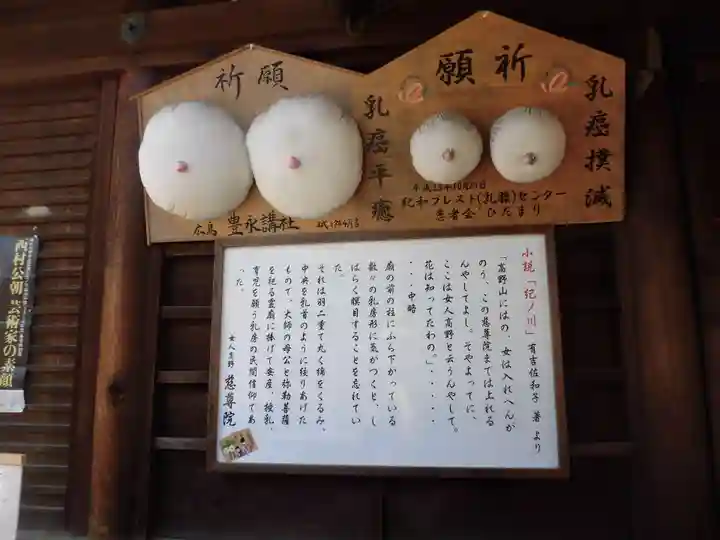 祈願
乳癌平癒
広島 豊永講社
祈願
乳癌撲滅
平成23年10月21日
紀和ブレスト(乳腺)センター
患者会 ひだまり
小説「紀ノ川」 有吉佐和子 著 より
「高野山にはの、女は入れへんが
のう、この慈尊院までは上れる
んやしてよし。そやよってに、
ここは女人高野と云うんやして。
花は知ってたわの。」・・・・
・・・中略
廟の前の柱にぶら下がっている
数々の乳房形に気がつくと、し
ばらく瞑目することを忘れてい
た。
それは羽二重で丸く綿をくるみ、
中央を乳首のように絞りあげた
もので、大師の母公と弥勒菩薩
を祀る霊廟に捧げて安産、授乳、
育児を願う乳房の民間信仰であ
った。
女人高野 慈尊院
西村公朝 芸術家の素顔